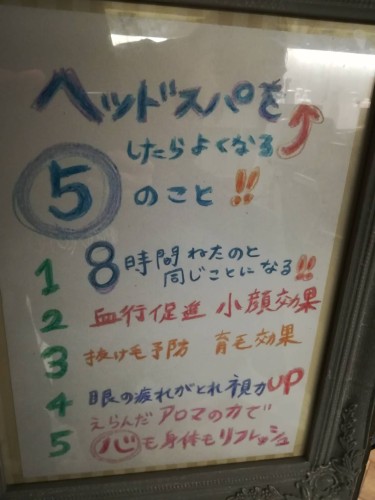 ヘッドスパを
したらよくなる
5のこと!!
1 8時間ねたのと
同じことになる!!
2 血行促進 小顔効果
3 抜け毛予防 育毛効果
4 眼の疲れがとれ視力UP
えらんだアロマの力で
5 心も身体もリフレッシュ